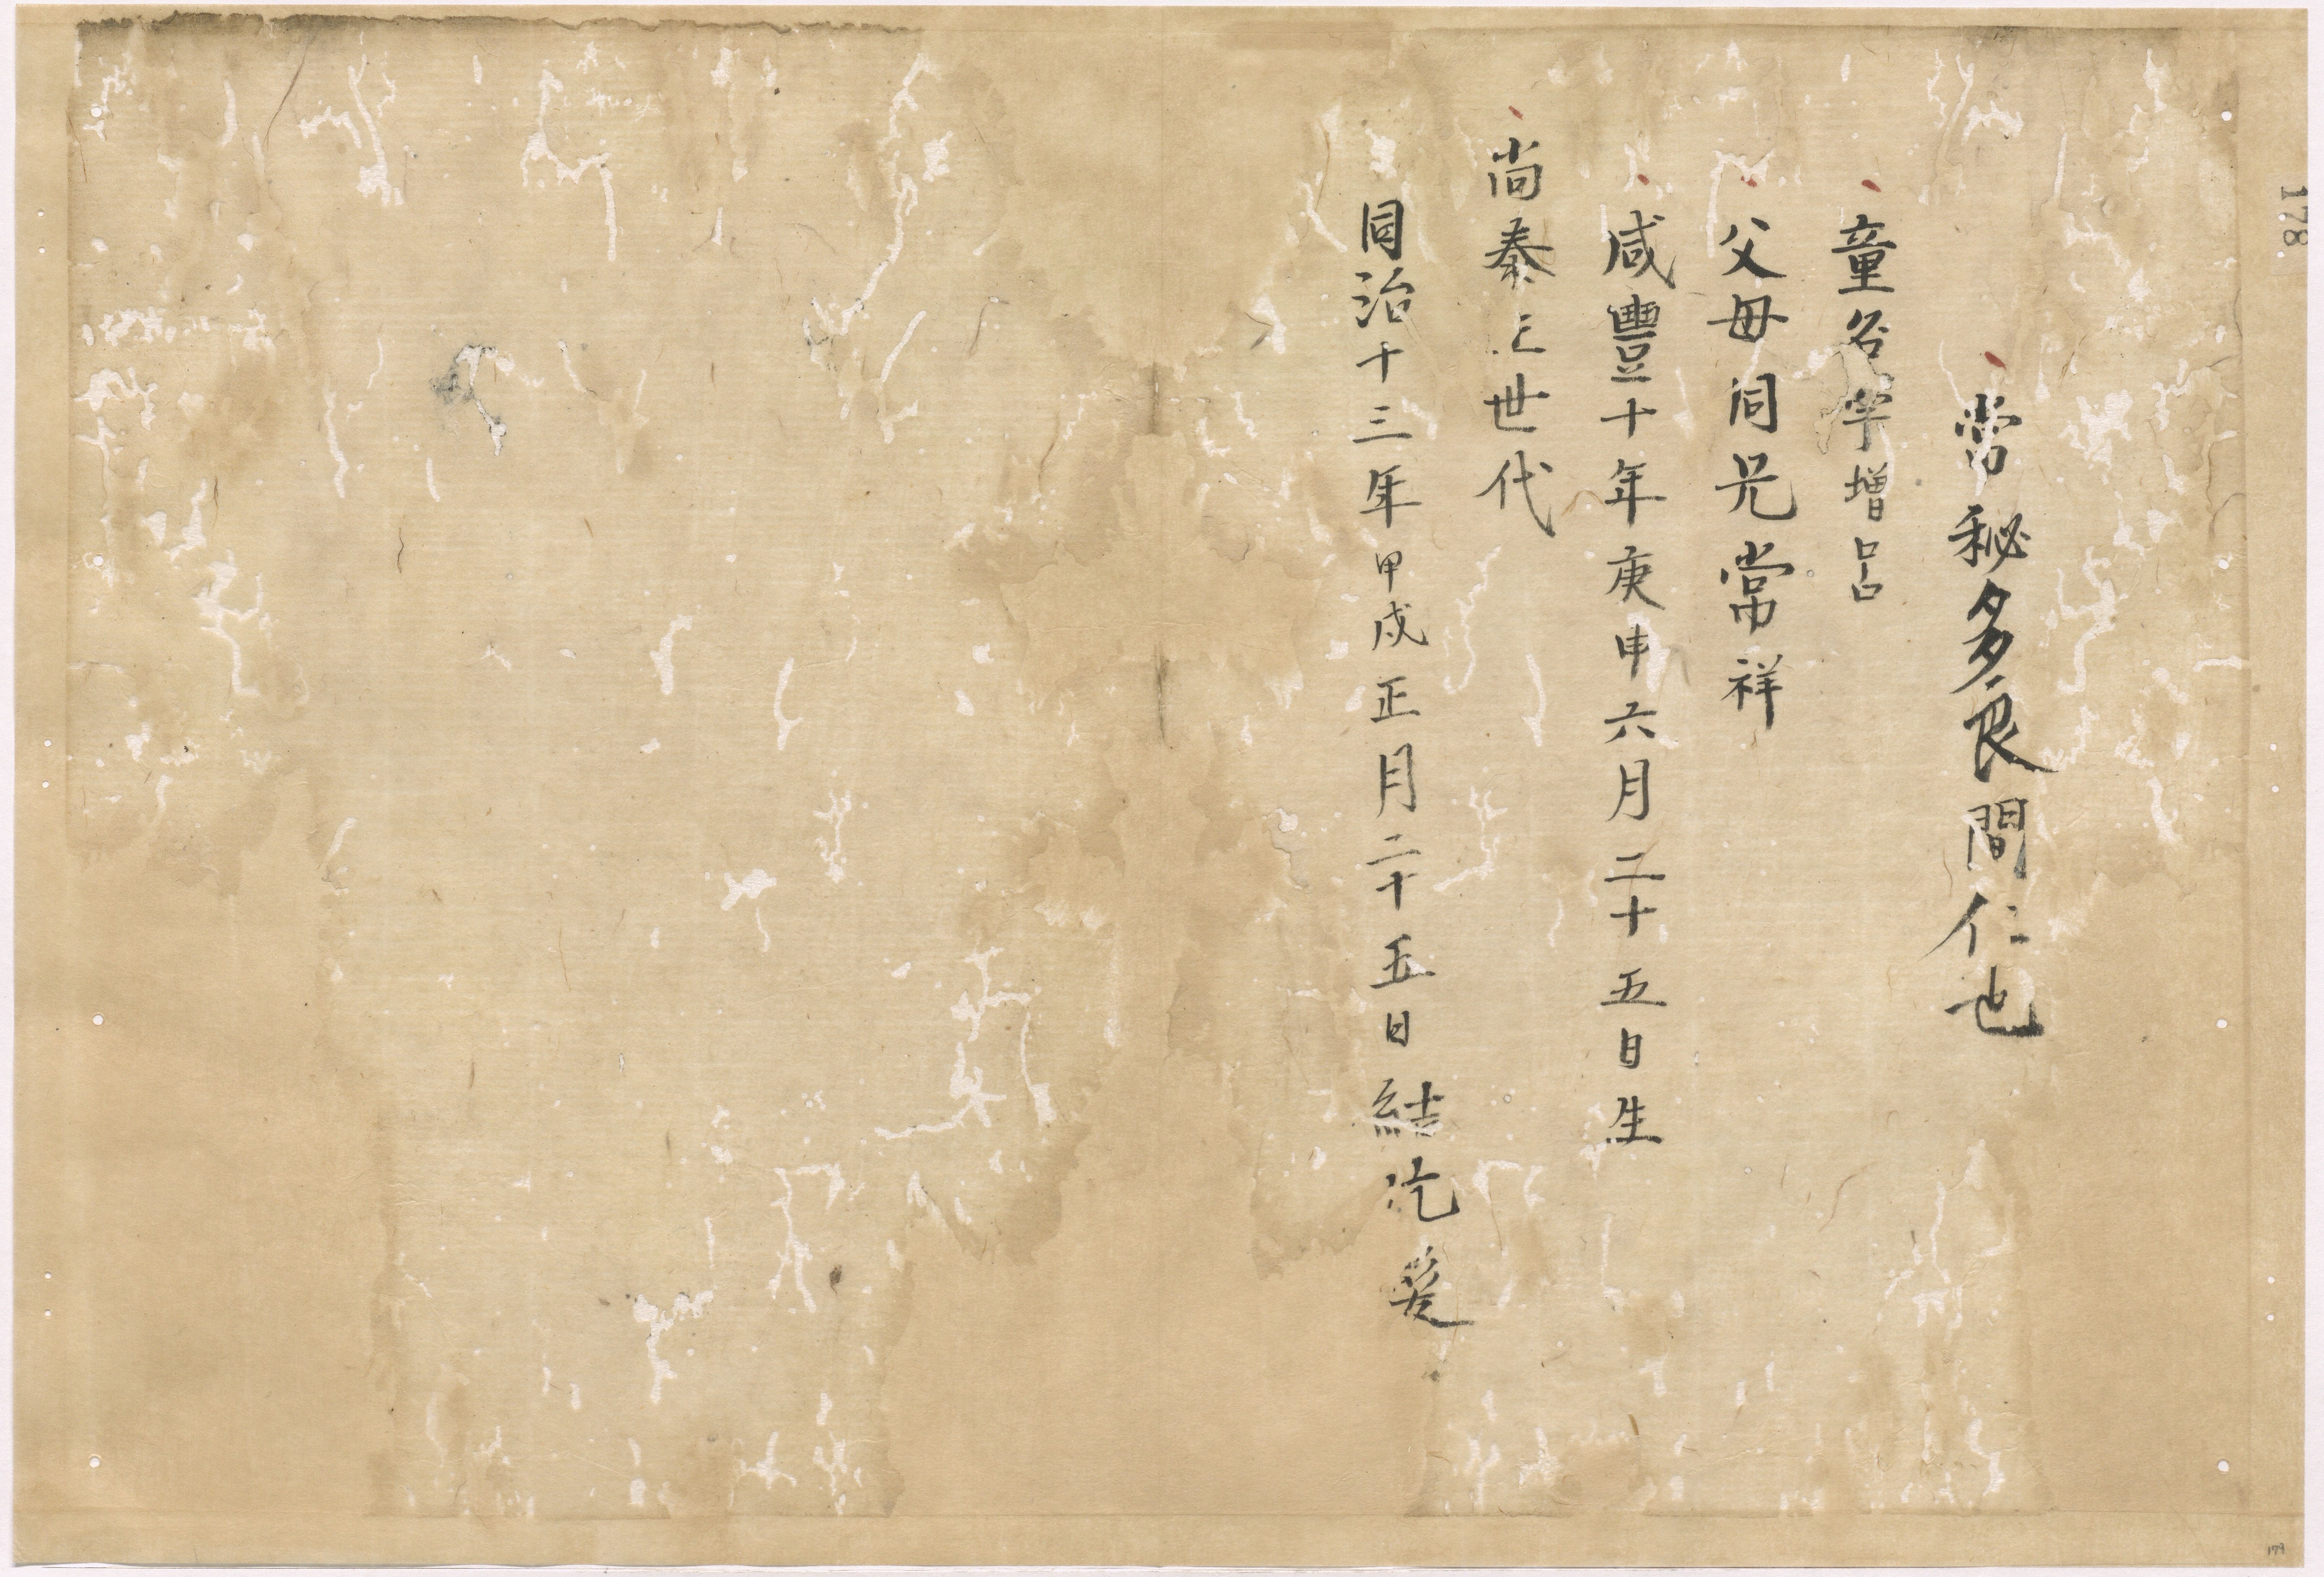 178
當秘多良間仁也
童名 増呂
父母同兄常祥
咸豐十年庚申六月二十五日生
尚泰王世代
同治十三年甲戌正月二十五日結片髪
179